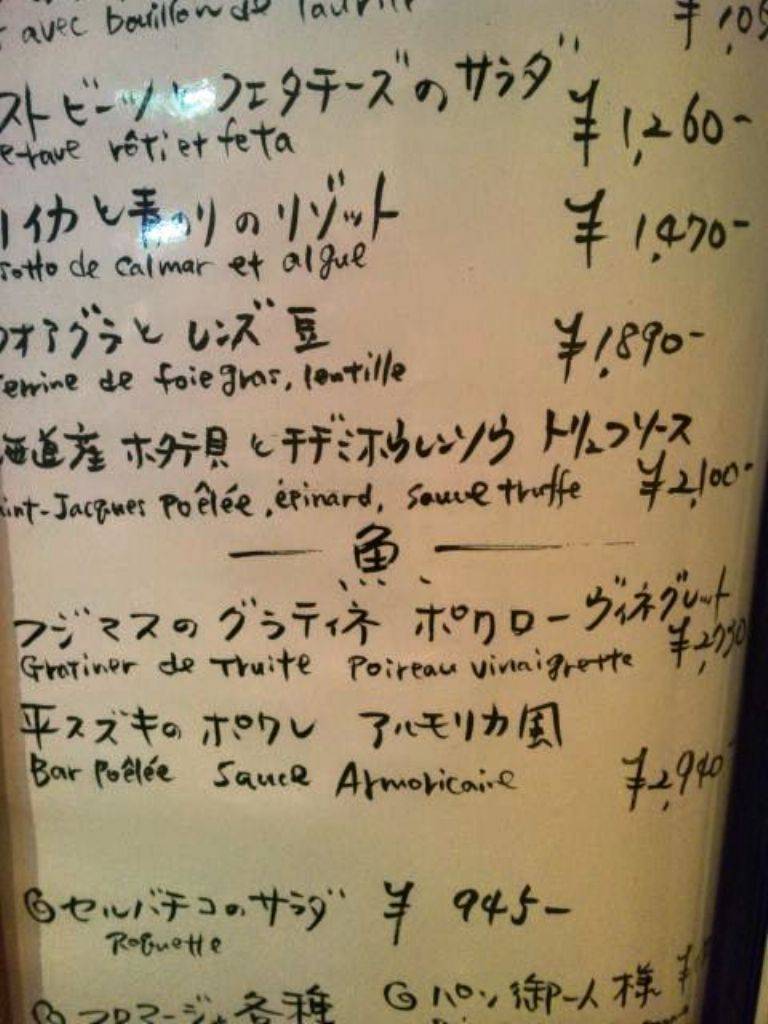 avec bouillon de laurier ¥1,05
スト ビーツとフェタチーズのサラダ ¥1,260-
e-rave rôti et feta
イカと青のりのリゾット ¥1,470-
sotto de calmar et algue
フォアグラとレンズ豆 ¥1,890-
errine de foie gras, lentille
海道産 ホタテ貝とチヂミホウレンソウ トリュフソース
int-Jacques poêlée, épinard, sauce truffe ¥2,100-
魚
フジマスのグラティネ ポワロー ヴィネグレット
Gratiner de Truite Poireau vinaigrette ¥2,730
平スズキのポワレ アルモリカ風
Bar Poêlée Sauce Armoricaine ¥2,940-
◎セルバチコのサラダ ¥ 945-
Roquette
◎フロマージュ各種 ◎パン御一人様